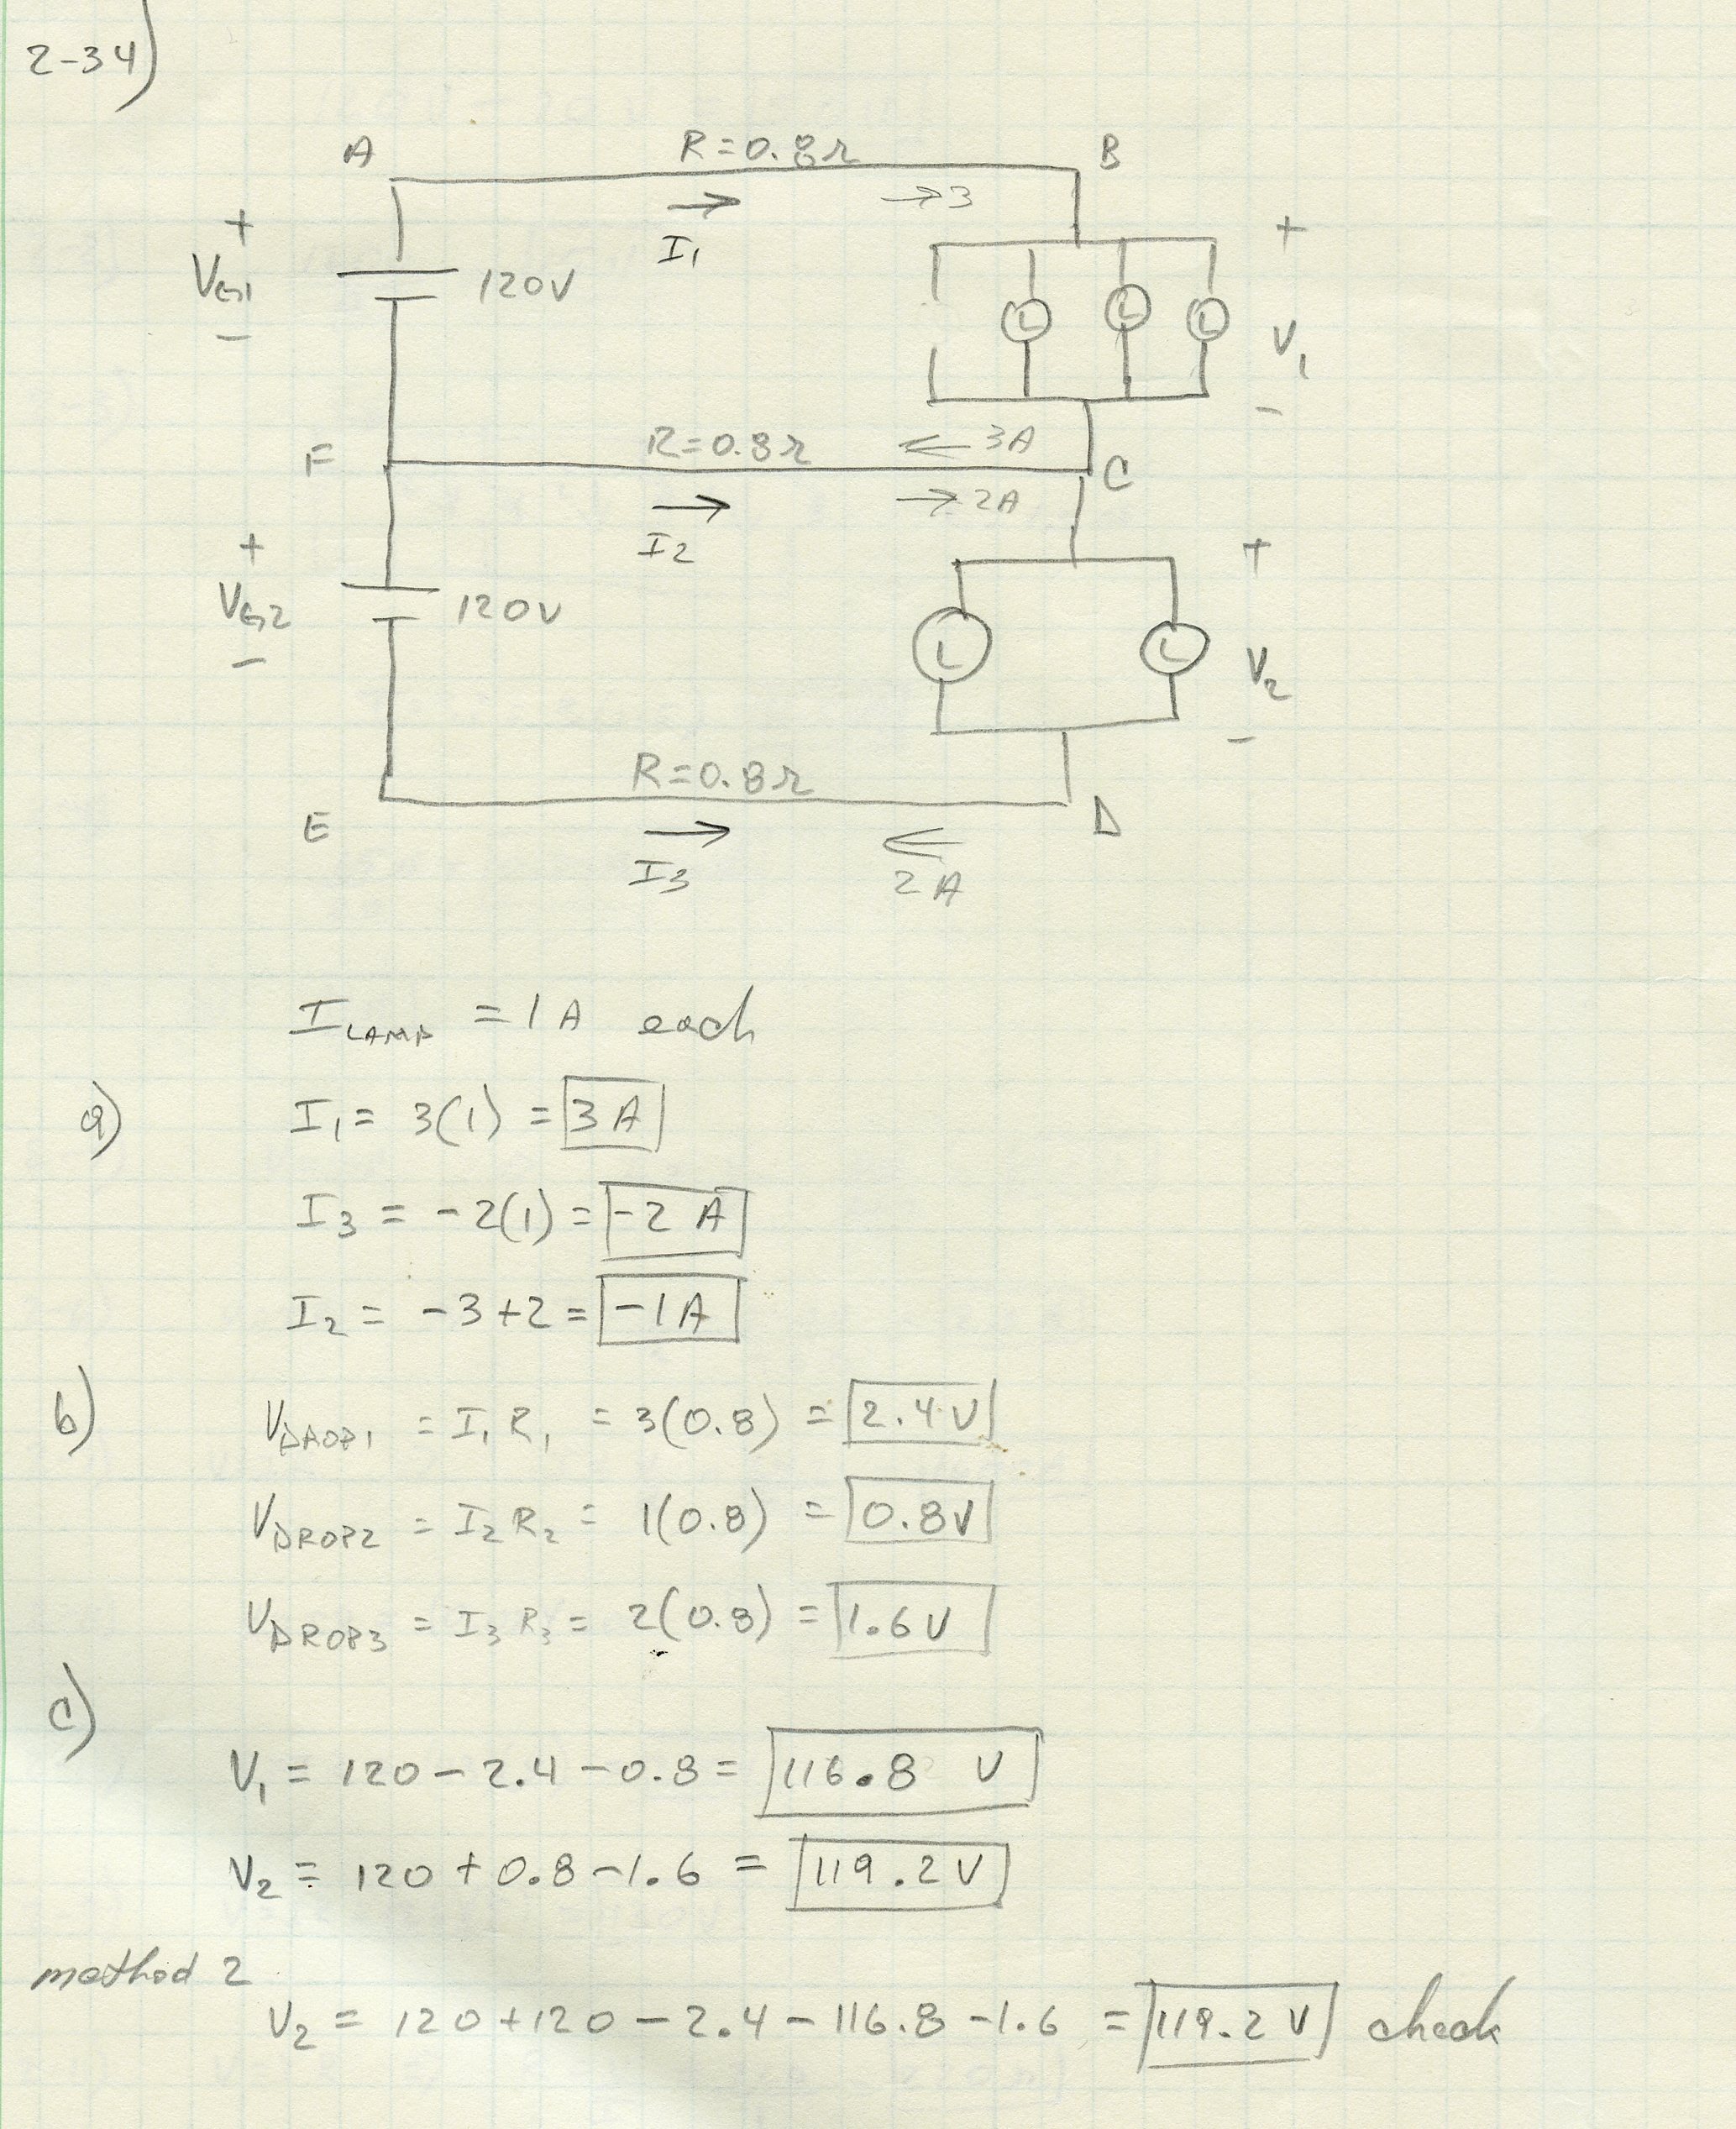 2-34)
A R=0.8Ω B
→ →3
I1
+
VG1 120V
-
+
V1
-
L L L
F R=0.8Ω ← 3A C
→ → 2A
I2
+
VG2 120V
-
+
V2
-
L L
R=0.8Ω
E → ← D
I3 2A
ILAMP = 1A each
a) I1 = 3(1) = 3A
I3 = -2(1) = -2 A
I2 = -3+2 = -1A
b) VDROP1 = I1 R1 = 3(0.8) = 2.4V
VDROP2 = I2 R2 = 1(0.8) = 0.8V
VDROP3 = I3 R3 = 2(0.8) = 1.6V
c)
V1 = 120-2.4-0.8 = 116.8 V
V2 = 120+0.8-1.6 = 119.2V
method 2
V2 = 120+120-2.4-116.8-1.6 = 119.2 V check